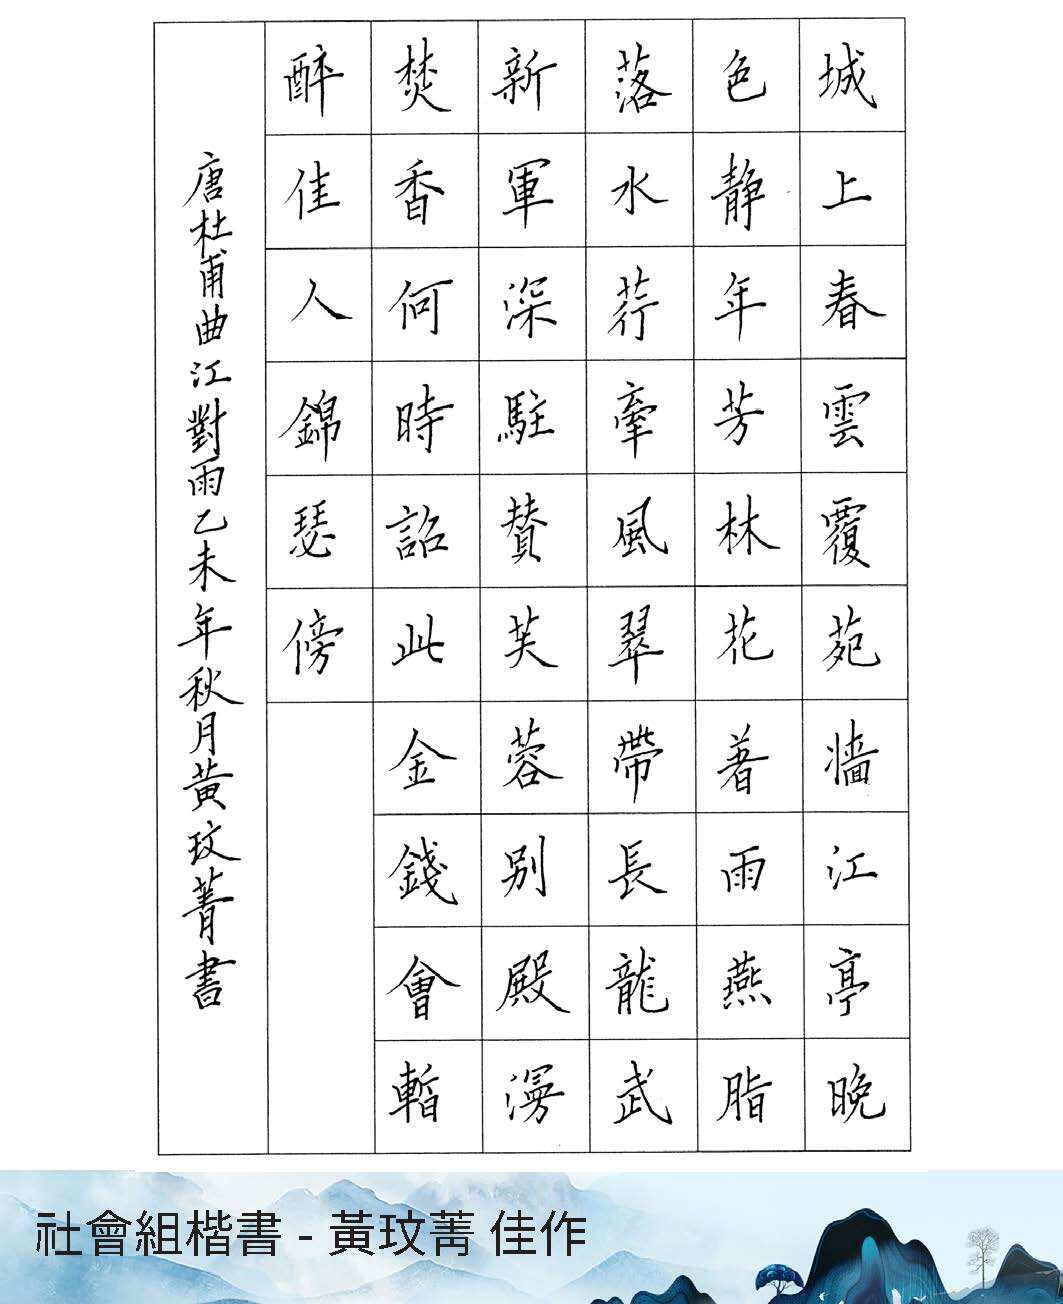 城上春雲覆苑牆江亭晚
色靜年芳林花著雨燕脂
落水荇牽風翠帶長龍武
新軍深駐賛芙蓉別殿漫
焚香何時詔此金錢會暫
醉佳人錦瑟傍
唐杜甫曲江對雨乙未年秋月黃玟菁書
社會組楷書 - 黃玟菁 佳作